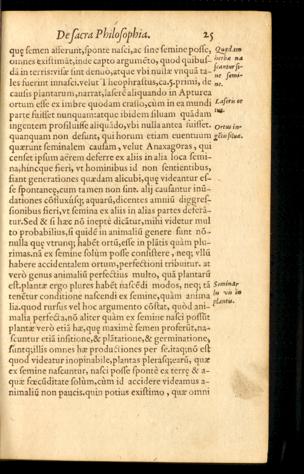 De sacra Philosophia. 25
quę semen afferunt, sponte nasci, ac sine semine posse,
omnes existimāt, inde capto argumēto, quod quibus-
dā in terris visæ sint denuò, atque vbi nullæ vnquā ta-
les fuerint innasci. velut Theophrastus, ca. 5. primi, de
causis plantarum, narrat, laserē aliquando in Apturea
ortum esse ex imbre quodam crasso, cùm in ea mundi
parte fuisset nunquam: atque ibidem siluam quādam
ingentem profiluisse aliquādo, vbi nulla antea fuisset.
quanquam non desunt, qui horum etiam euentuum
quærunt seminalem causam, velut Anaxagoras, qui
censet ipsum aërem deferre ex aliis in alia loca semi-
na, hincque fieri, vt hominibus id non sentientibus,
fiant generationes quædam alicubi, quę videantur es-
se spontaneę, cum tamen non sint. alij causantur inū-
dationes cōfluxúsq; aquarū, dicentes amniū digres-
sionibus fieri, vt semina ex aliis in alias partes deferā-
tur. Sed & si hæc nō ineptè dicātur, mihi videtur mul
to probabilius, si quidē in animaliū genere sunt nō-
nulla quę vtrunq; habēt ortū, esse in plātis quàm plu-
rimas. nā ex semine solùm posse consistere, neq; vllū
habere accidentalem ortum, perfectioni tribuitur. at
verò genus animaliū perfectius multo, quā plantarū
est. plantæ ergo plures habēt nascēdi modos, neq; tā
tenētur conditione nascendi ex semine, quàm anima
lia. quod rursus vel hoc argumento cōstat, quòd ani-
malia perfecta, nō aliter quàm ex semine nasci possūt
plantæ verò etiā hæ, quę maximè semen proferūt, na-
scuntur etiā insitione, & plātatione, & germinatione,
suntq; illis omnes hæ productiones per se. itaq; nō est
quod videatur inopinabile, plantas plerasq; earū, quæ
ex semine nascuntur, nasci posse sponte ex terrę & a-
quæ fœcūditate solùm, cùm id accidere videamus a-
nimaliū non paucis. quin potius existimo, quæ omni
Quædam
herbæ na
scantur si-
ne semi-
ne.
Laseris or
tus.
Ortus in-
gētis siluæ.
Seminar
in plantis.